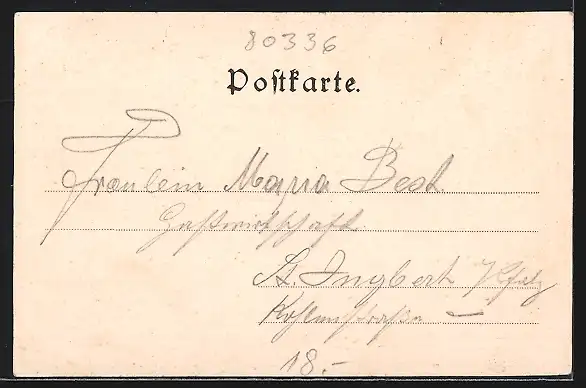 80336
Postkarte.
Fräulein Maria Best
Gastwirtschaft
St. Ingbert Pfalz
Kohlenstraße —
18.-